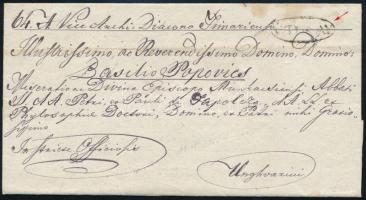 64. A Vice Archi-Diacono
Illustrissimo, ac Reverendissimo Domino, Domino
Basilio Popovics
Miseratione Divina Episcopo Munkacsiensi, Abbati
S. AA. Petri et Pauli de Tapolcza, AA. LL. et
Phylosophiae Doctori, Domino, et Patri mihi Gratio-
sissimo
Officiosis
Unghvarini